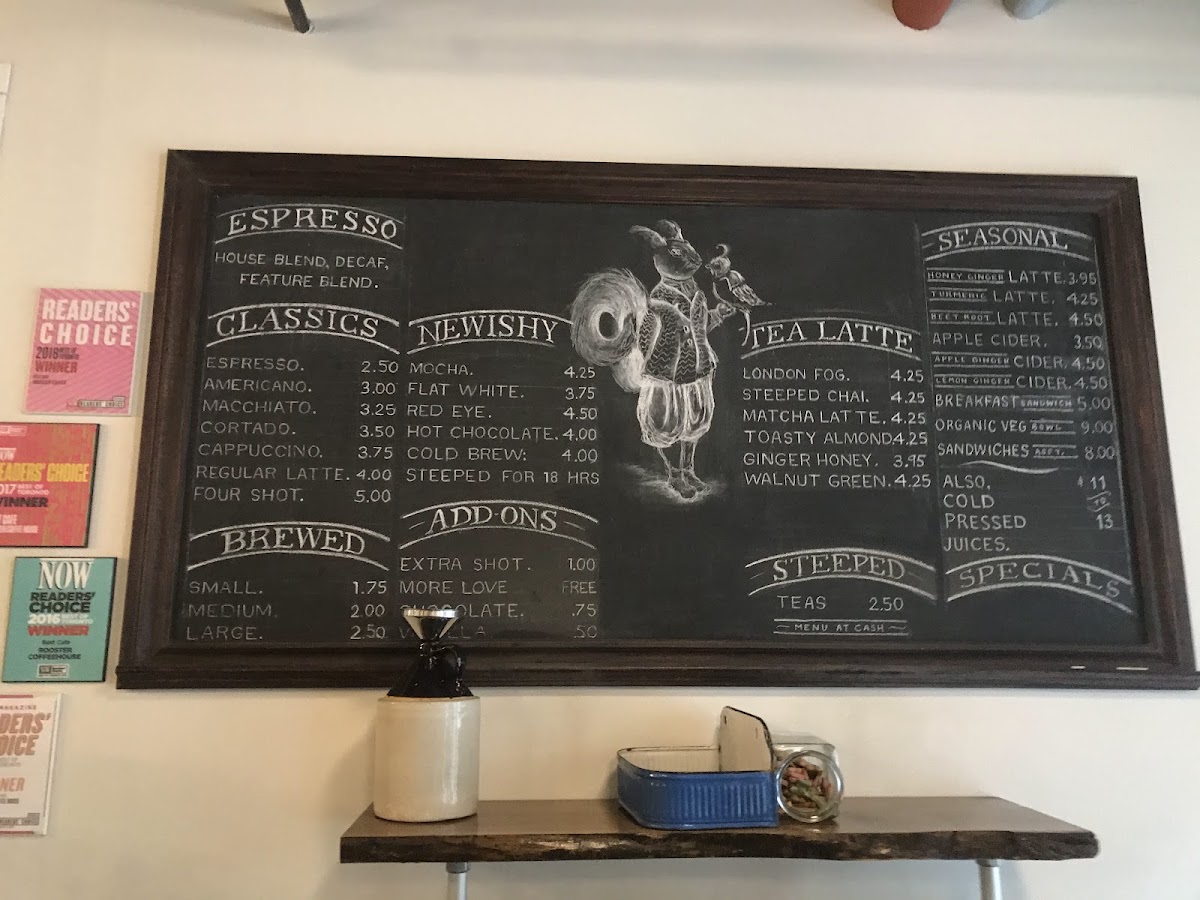 ESPRESSO
HOUSE BLEND, DECAF,
FEATURE BLEND.
CLASSICS
ESPRESSO. 2.50
AMERICANO. 3.00
MACCHIATO. 3.25
CORTADO. 3.50
CAPPUCCINO. 3.75
REGULAR LATTE. 4.00
FOUR SHOT. 5.00
BREWED
SMALL. 1.75
MEDIUM. 2.00
LARGE. 2.50
NEWISHY
MOCHA. 4.25
FLAT WHITE. 3.75
RED EYE. 4.50
HOT CHOCOLATE. 4.00
COLD BREW: 4.00
STEEPED FOR 18 HRS
ADD-ONS
EXTRA SHOT. 1.00
MORE LOVE FREE
.75
.50
TEA LATTE
LONDON FOG. 4.25
STEEPED CHAI. 4.25
MATCHA LATTE. 4.25
TOASTY ALMOND 4.25
GINGER HONEY. 3.95
WALNUT GREEN. 4.25
STEEPED
TEAS 2.50
MENU AT CASH
SEASONAL
HONEY GINGER LATTE. 3.95
TURMERIC LATTE. 4.25
BEET ROOT LATTE. 4.50
APPLE CIDER. 3.50
APPLE GINGER CIDER. 4.50
LEMON GINGER CIDER. 4.50
BREAKFAST SANDWICH 5.00
ORGANIC VEG BOWL 9.00
SANDWICHES ASST. 8.00
ALSO, $11
COLD TO
PRESSED 13
JUICES.
SPECIALS
READERS'
CHOICE
2018 BEST OF TORONTO
WINNER
READERS' CHOICE
2017 BEST OF TORONTO
WINNER
NOW
READERS'
CHOICE
2016 BEST OF TORONTO
WINNER
Best Cafe
ROOSTER
COFFEEHOUSE
MAGAZINE